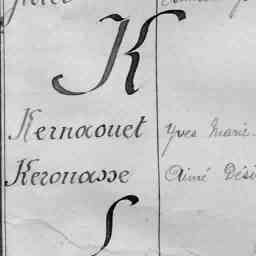 K
Kernaouet Yves Marie
Kerouasse Aimé Dési